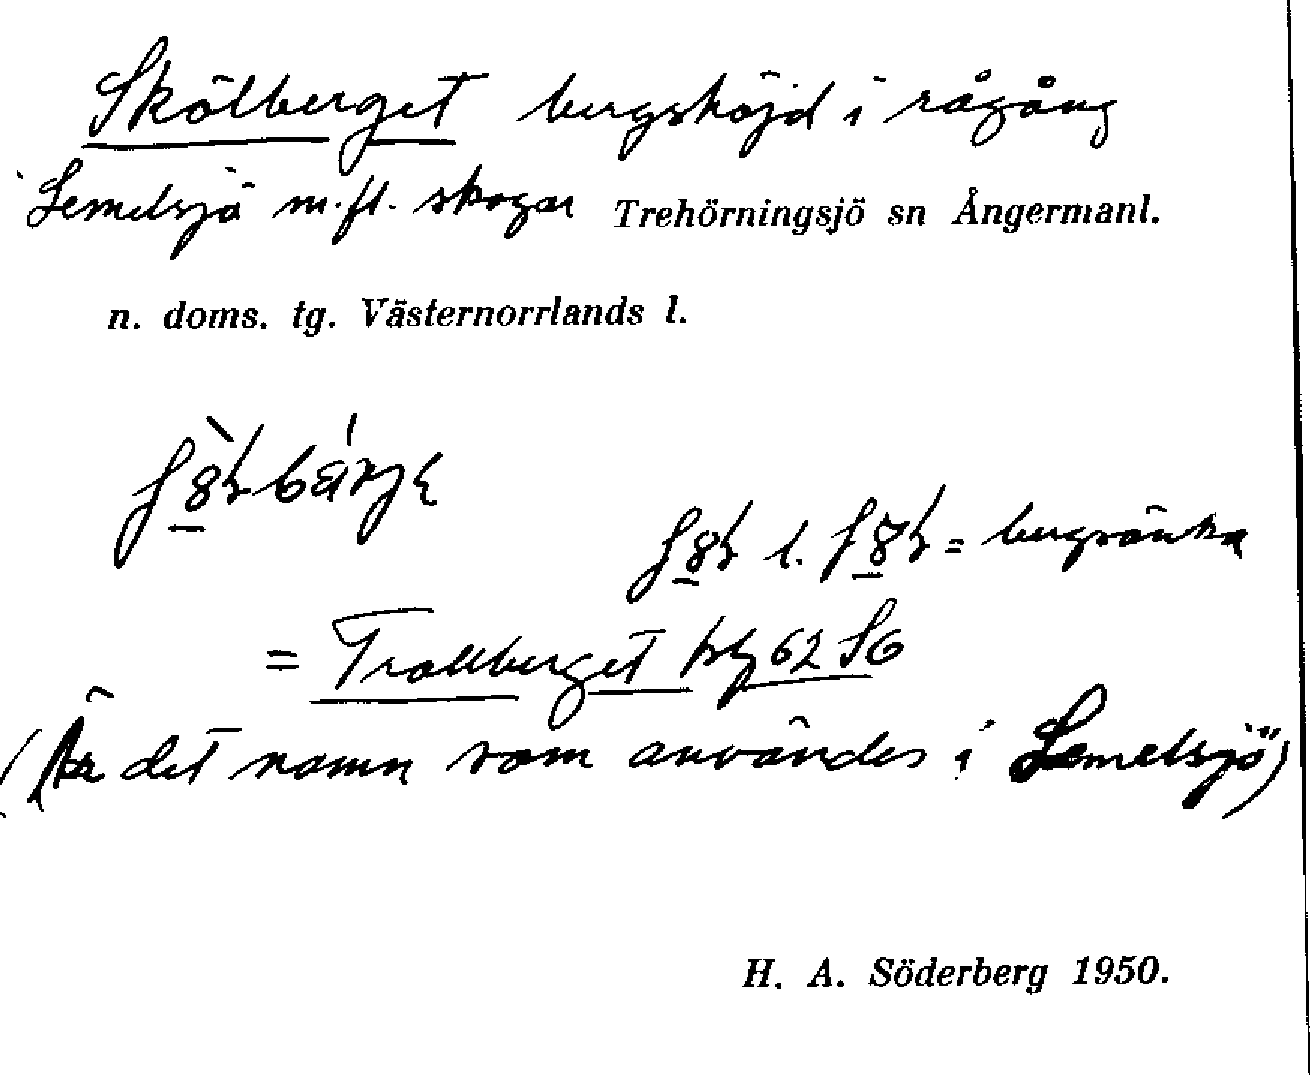 Skölberget bergshöjd i rågång
Lemelsjö m.fl. skogar Trehörningsjö sn Ångermanl.
n. doms. tg. Västernorrlands l.
l. = bergränka
= Trollberget 62 S6
(Är det namn som användes i Lemelsjö)
H. A. Söderberg 1950.